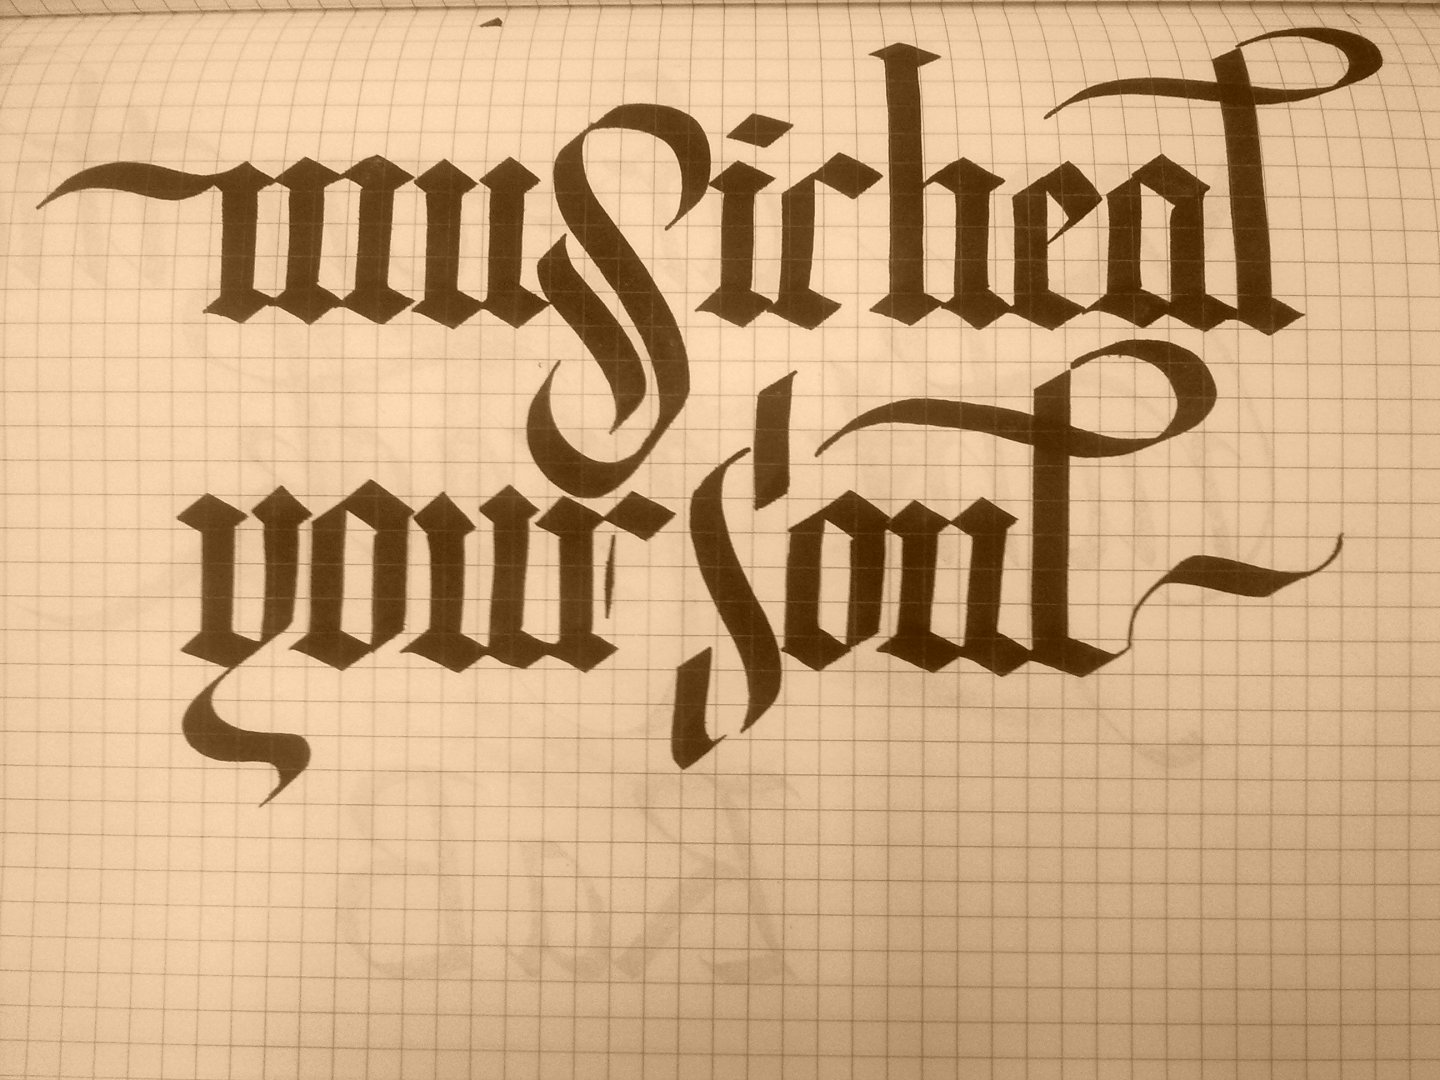 muSic heal
your Soul